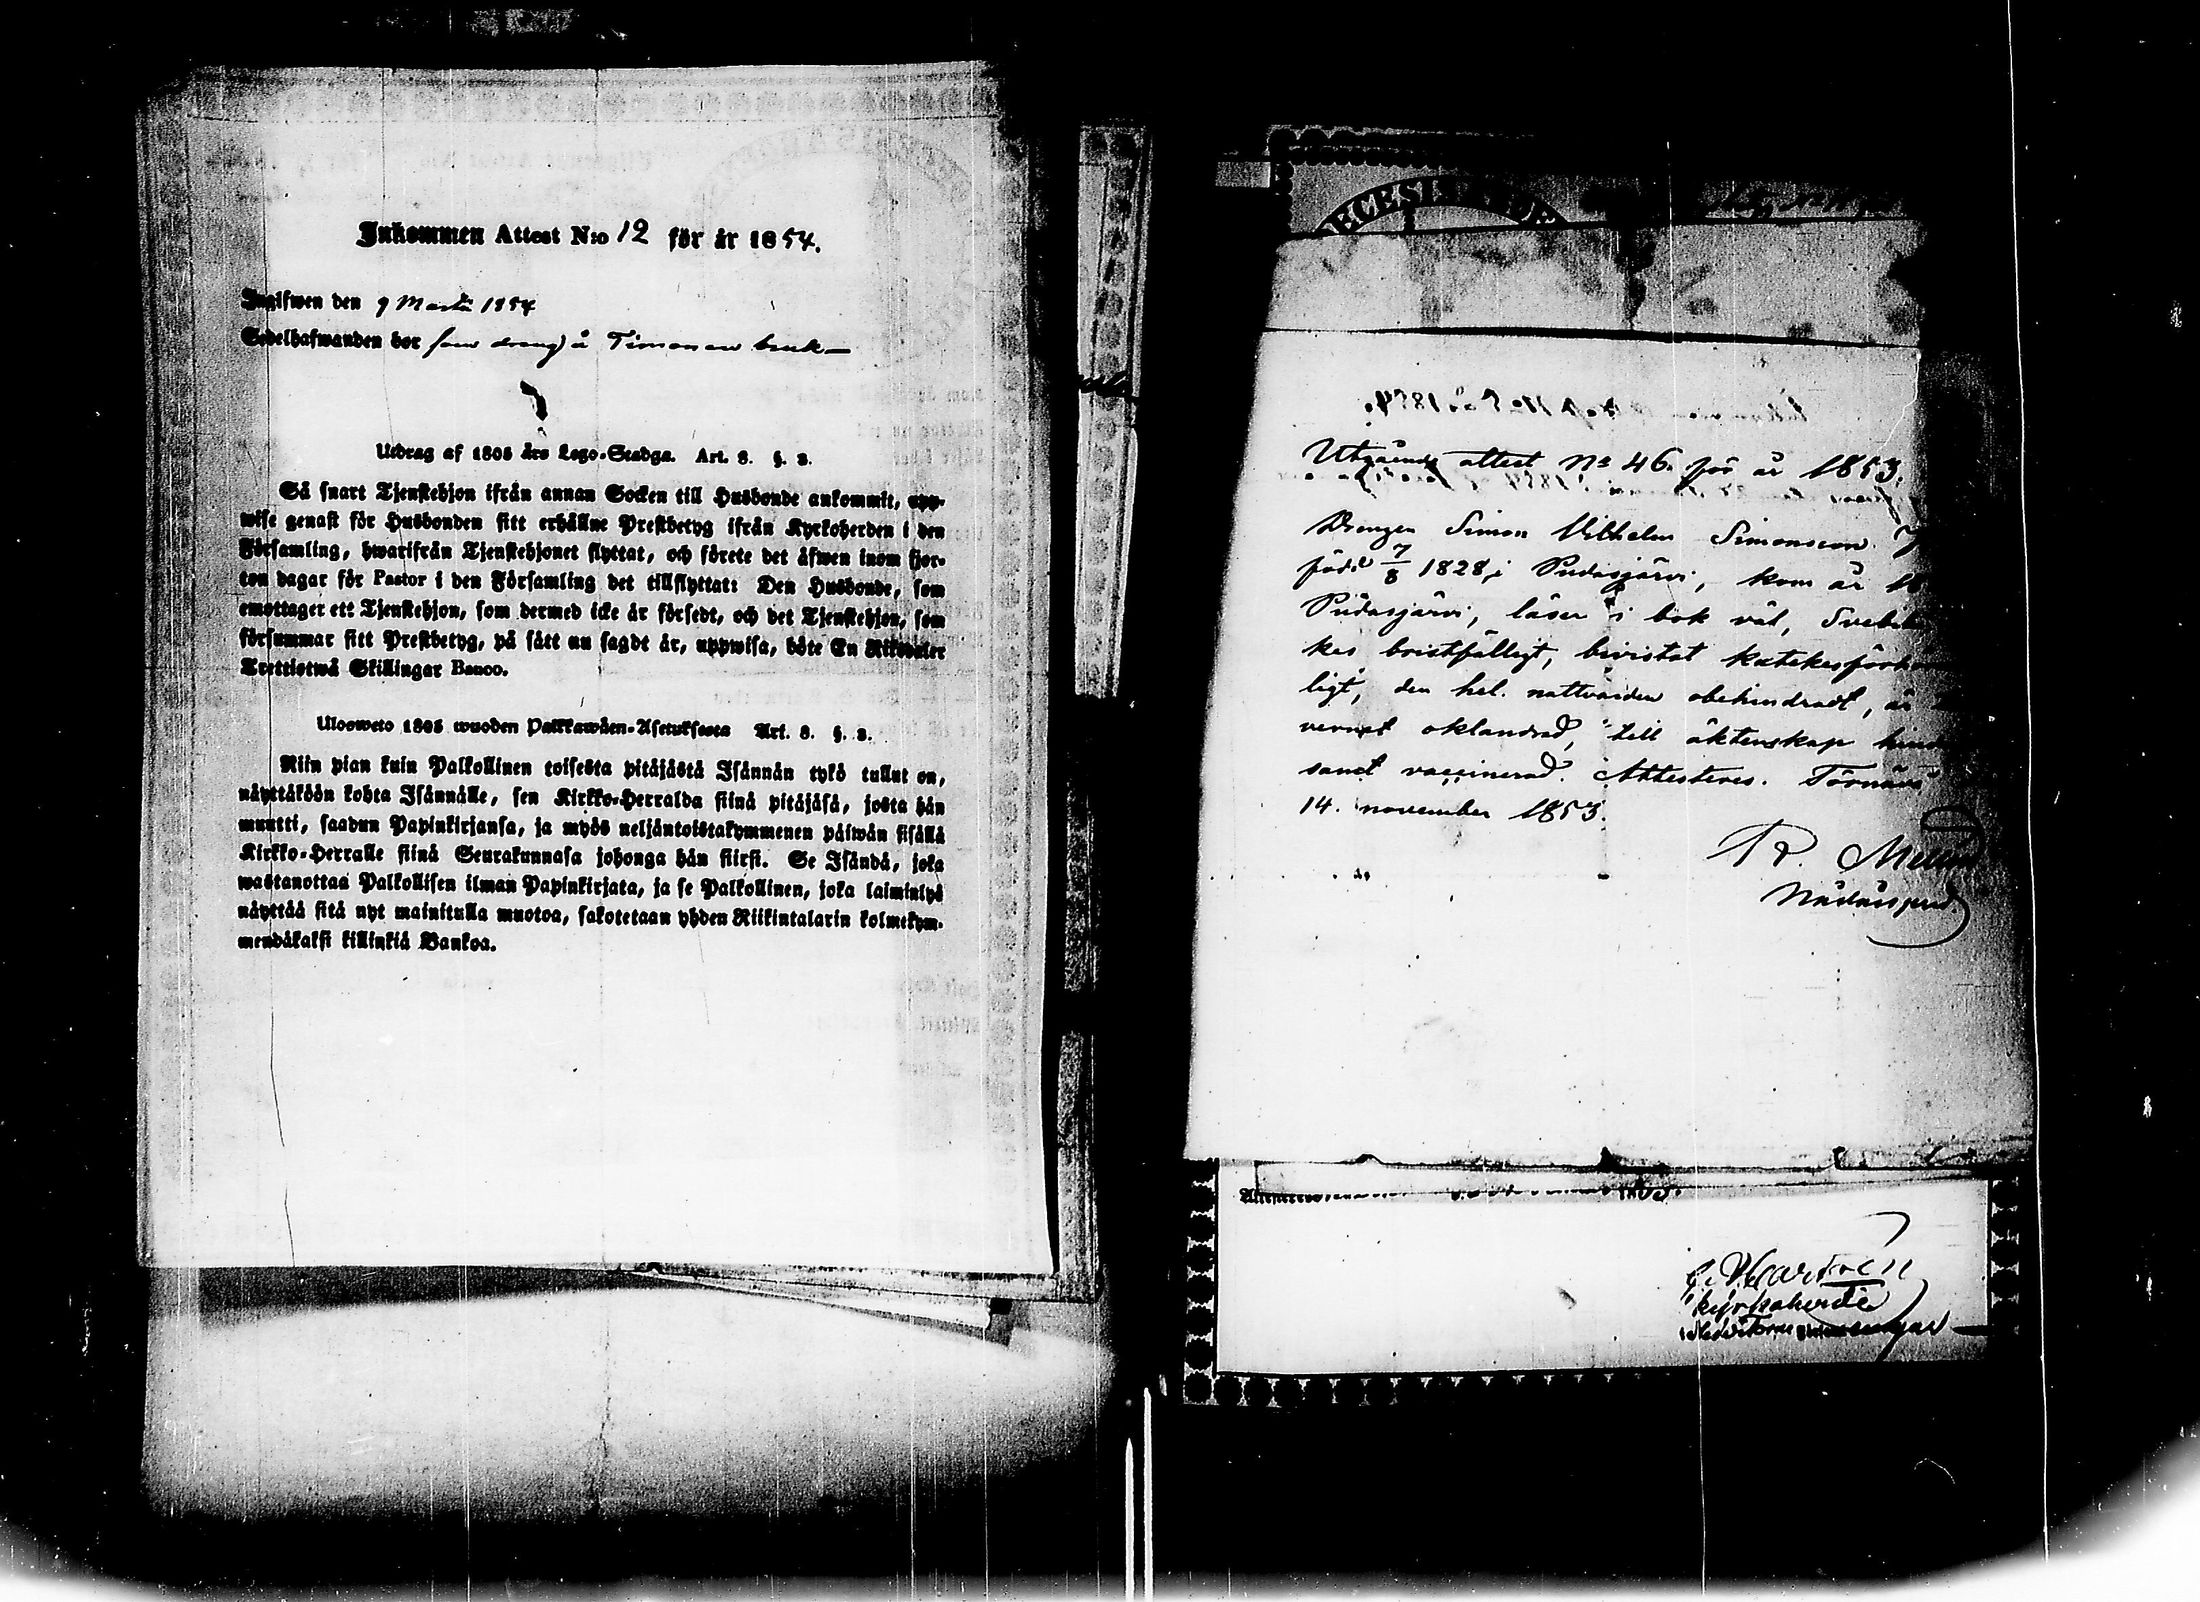 Inkommen Attest N:o 12 för år 1854.
Inglfwen den 9 Martii 1854
Sedelhafwanden bor som dreng å Timonen bruk
Utdrag af 1805 års Lego-Stadga. Art. 3. §. 2.
Så snart Tjenstehjon ifrån annan Socken till Husbonde ankommit, upp-
wise genast för Husbonden sitt erhållne Prestbetyg ifrån Kyrkoherden i den
Församling, hwarifrån Tjenstehjonet flyttat, och förete det äfwen inom fjor-
ton dagar för Pastor i den Församling det tillflyttat: Den Husbonde, som
emottager ett Tjenstehjon, som dermed icke är försedt, och det Tjenstehjon, som
försummar sitt Prestbetyg, på sätt nu sagdt är, uppwisa, böte En Riksdaler
Trettiotwå Skillingar Banco.
Ulosweto 1805 wuoden Palkkawäen-Asetuksesta Art. 3. §. 2.
Niin pian kuin Palkollinen toisesta pitäjästä Isännän tykö tullut on,
näyttäköön kohta Isännälle, sen Kirkko-Herralda siinä pitäjäsä, josta hän
muutti, saadun Papinkirjansa, ja myös neljäntoistakymmenen päiwän sisällä
Kirkko-Herralle siinä Seurakunnasa johonga hän siirsi. Se Isändä, joka
wastanottaa Palkollisen ilman Papinkirjata, ja se Palkollinen, joka laiminlyö
näyttää sitä nyt mainitulla muotoa, sakotetaan yhden Riikintalarin kolmekym-
mendäkaksi killinkiä Bankoa.
ECESIS
Utgående attest No 46. för år 1853.
Drengen Simon Vilhelm Simonsson
född 7/8 1828 i Pudasjärvi, kom år 18
Pudasjärvi, läser i bok väl, Svebili
kes bristfälligt, bevistat katekesförhör
ligt, den hel. nattvarden obehindradt, är
vernet oklandrad, till äktenskap hind
samt vaccinerad. Attesteres. Törnävä
14. november 1853.
kyrkoherde